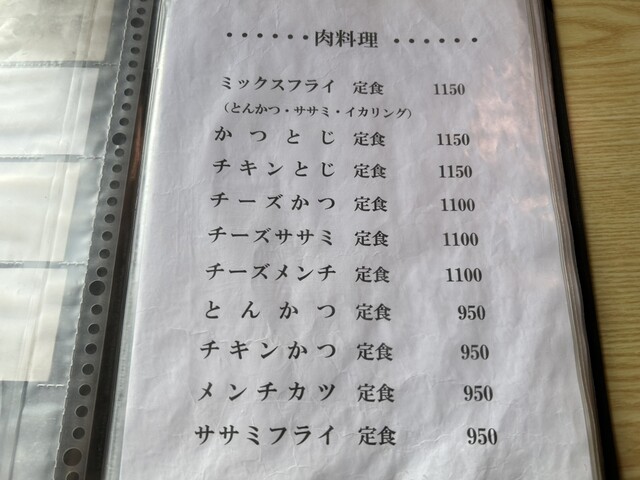 ・・・・・・肉料理・・・・・・
ミックスフライ 定食 1150
（とんかつ・ササミ・イカリング）
かつとじ 定食 1150
チキンとじ 定食 1150
チーズかつ 定食 1100
チーズササミ 定食 1100
チーズメンチ 定食 1100
とんかつ 定食 950
チキンかつ 定食 950
メンチカツ 定食 950
ササミフライ 定食 950